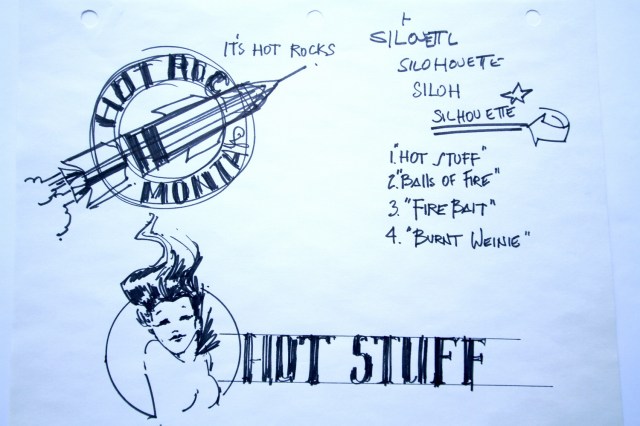 IT'S HOT ROCKS
HOT ROC
MONTA
SILOUETTL
SILOHOUETTE
SILOH
SILHOUETTE
1. "HOT STUFF"
2. "BALLS OF FIRE"
3. "FIRE BAIT"
4. "BURNT WEINIE"
HOT STUFF